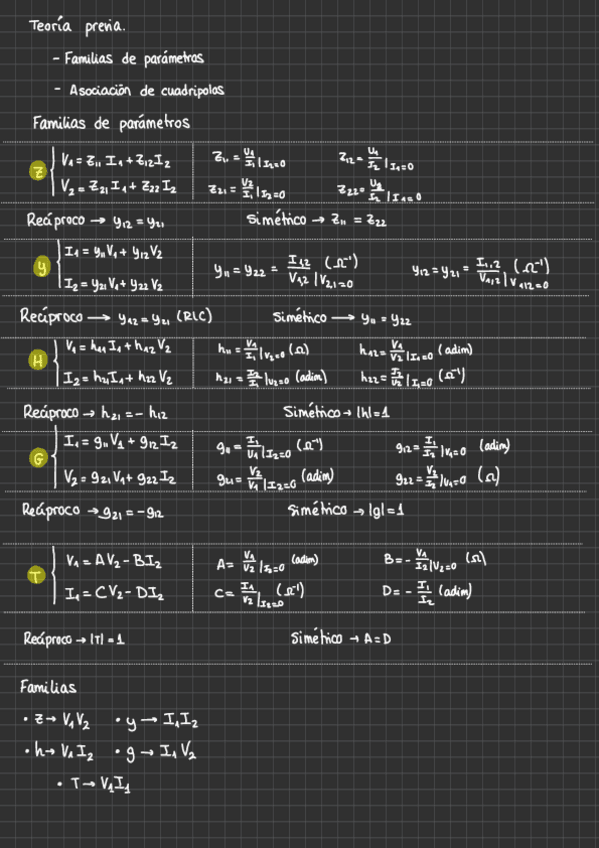 Teoría previa.
- Familias de parámetros
- Asociación de cuadripolos
Familias de parámetros
Z { V1 = Z11 I1 + Z12 I2
V2 = Z21 I1 + Z22 I2
Z11 = U1/I1 | I2=0 Z12 = U1/I2 | I1=0
Z21 = V2/I1 | I2=0 Z22 = U2/I2 | I1=0
Recíproco → y12 = y21 Simético → Z11 = Z22
y { I1 = y11 V1 + y12 V2
I2 = y21 V1 + y22 V2
y11 = y22 = I1,2/V1,2 | V2,1=0 (Ω⁻¹) y12 = y21 = I1,2/V1,2 | V1,2=0 (Ω⁻¹)
Recíproco → y12 = y21 (RLC) Simético → y11 = y22
H { V1 = h11 I1 + h12 V2
I2 = h21 I1 + h22 V2
h11 = V1/I1 | V2=0 (Ω) h12 = V1/V2 | I1=0 (adim)
h21 = I2/I1 | U2=0 (adim) h22 = I2/U2 | I1=0 (Ω⁻¹)
Recíproco → h21 = - h12 Simético → |h|=1
G { I1 = g11 V1 + g12 I2
V2 = g21 V1 + g22 I2
g11 = I1/U1 | I2=0 (Ω⁻¹) g12 = I1/I2 | V1=0 (adim)
g21 = V2/V1 | I2=0 (adim) g22 = V2/I2 | U1=0 (Ω)
Recíproco → g21 = -g12 Simético → |g|=1
T { V1 = AV2 - BI2
I1 = CV2 - DI2
A = V1/V2 | I2=0 (adim) B = - V1/I2 | V2=0 (Ω)
C = I1/V2 | I2=0 (Ω⁻¹) D = - I1/I2 (adim)
Recíproco → |T| = 1 Simético → A = D
Familias
• Z → V1 V2 • y → I1 I2
• h → V1 I2 • g → I1 V2
• T → V1 I1